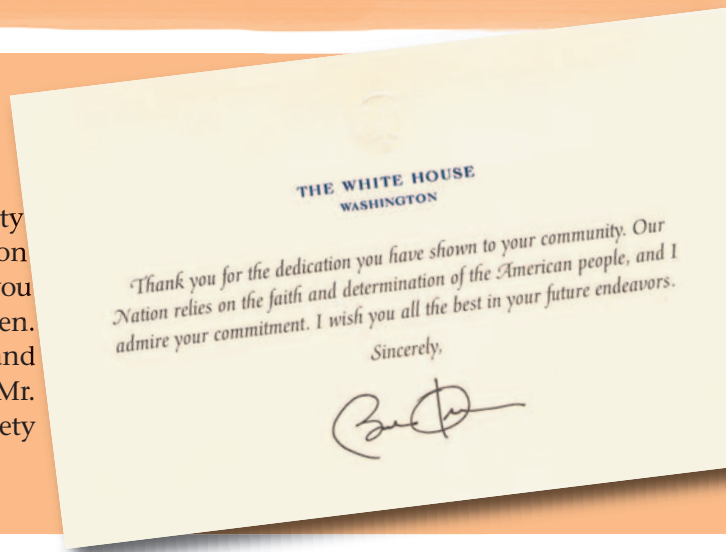 THE WHITE HOUSE
WASHINGTON
Thank you for the dedication you have shown to your community. Our
Nation relies on the faith and determination of the American people, and I
admire your commitment. I wish you all the best in your future endeavors.
Sincerely,
ty
on
ou
en.
and
Mr.
ety